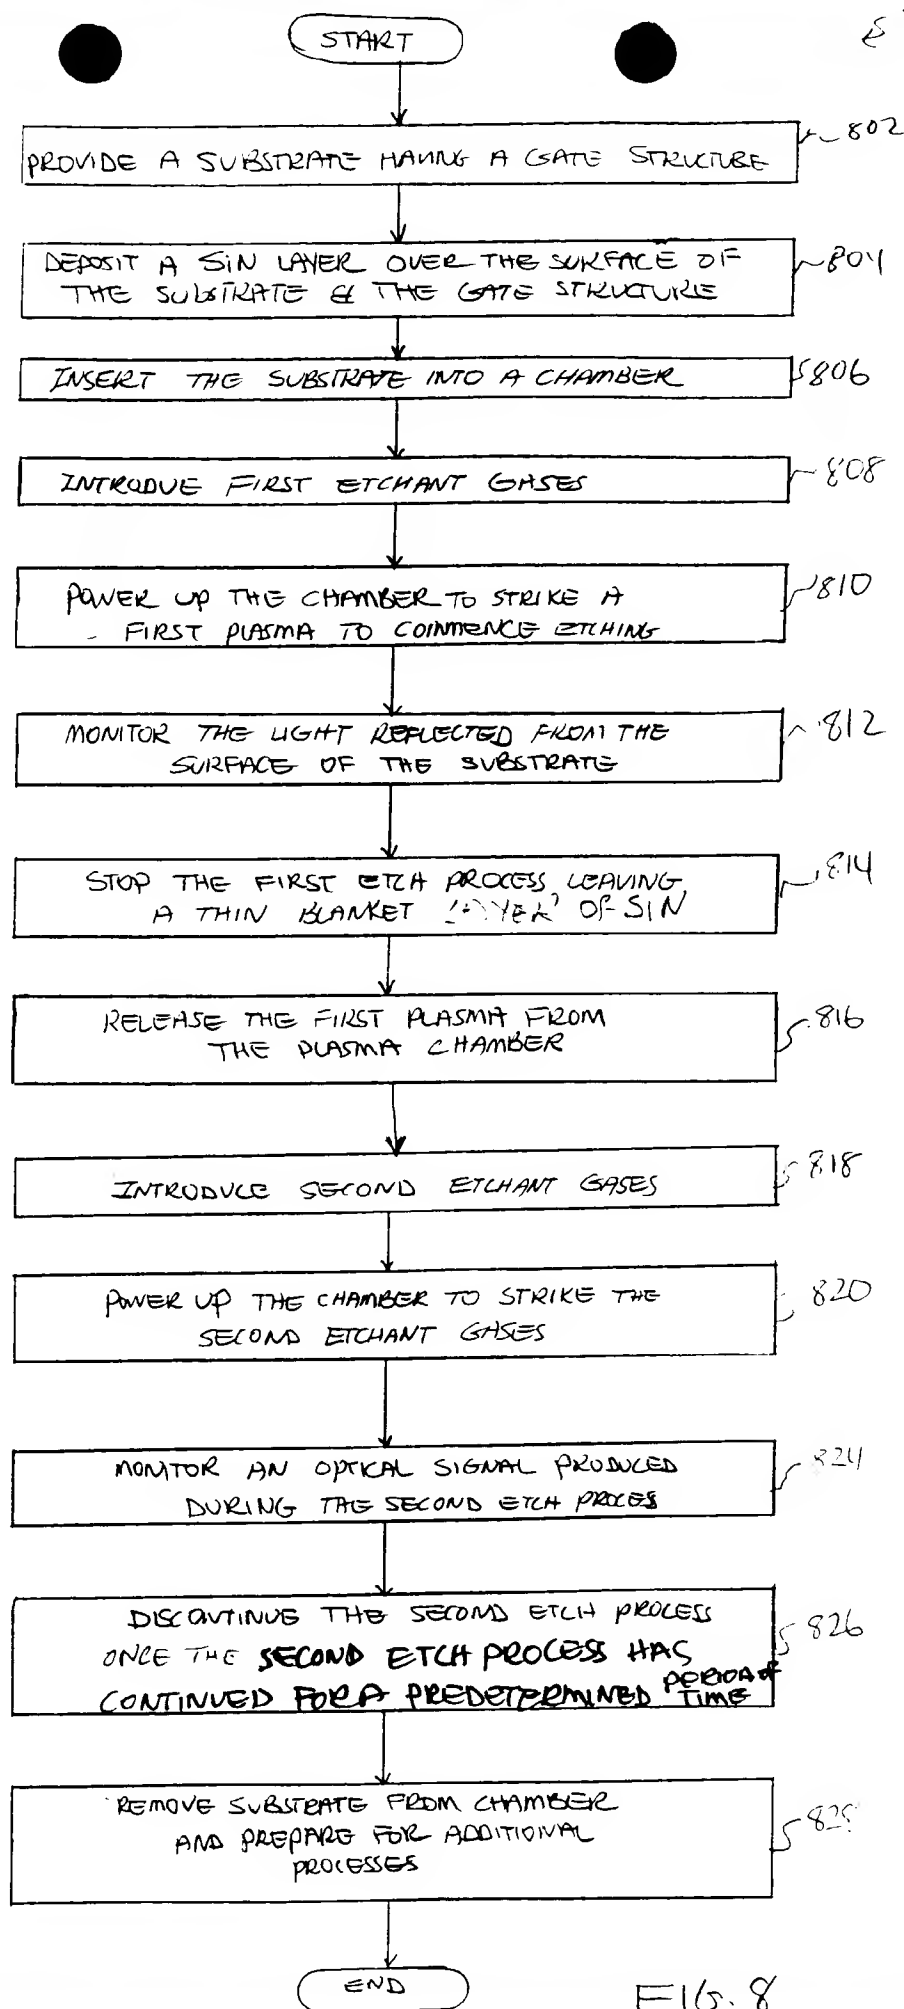 START
802
PROVIDE A SUBSTRATE HAVING A GATE STRUCTURE
DEPOSIT A SIN LAYER OVER THE SURFACE OF
THE SUBSTRATE & THE GATE STRUCTURE
804
INSERT THE SUBSTRATE INTO A CHAMBER
806
INTRODUE FIRST ETCHANT GASES
808
POWER UP THE CHAMBER TO STRIKE A
FIRST PLASMA TO COMMENCE ETCHING
810
MONITOR THE LIGHT REFLECTED FROM THE
SURFACE OF THE SUBSTRATE
812
STOP THE FIRST ETCH PROCESS LEAVING
A THIN BLANKET LAYER OF SIN
814
RELEASE THE FIRST PLASMA FROM
THE PLASMA CHAMBER
816
INTRODUCE SECOND ETCHANT GASES
818
POWER UP THE CHAMBER TO STRIKE THE
SECOND ETCHANT GASES
820
MONITOR AN OPTICAL SIGNAL PRODUCED
DURING THE SECOND ETCH PROCES
824
DISCONTINUE THE SECOND ETCH PROCESS
ONCE THE SECOND ETCH PROCESS HAS
CONTINUED FOR A PREDETERMINED PERIOD OF
TIME
826
REMOVE SUBSTRATE FROM CHAMBER
AND PREPARE FOR ADDITIONAL
PROCESSES
END
FIG. 8